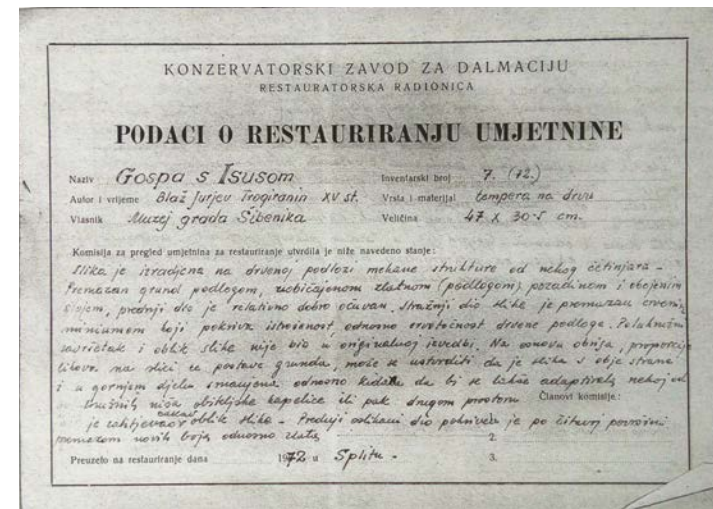 KONZERVATORSKI ZAVOD ZA DALMACIJU
RESTAURATORSKA RADIONICA
PODACI O RESTAURIRANJU UMJETNINE
Naziv Gospa s Isusom Inventarski broj 7. (72.)
Autor i vrijeme Blaž Jurjev Trogiranin XV st. Vrsta i materijal tempera na drvu
Vlasnik Muzej grada Šibenika Veličina 47 x 30·5 cm.
Komisija za pregled umjetnina za restauriranje utvrdila je niže navedeno stanje:
Slika je izradjena na drvenoj podlozi mekane strukture od nekog četinjara -
Premazan grund podlogom, uobičajenom zlatnom (podlogom) pozadinom i obojenim
slojem, prednji dio je relativno dobro očuvan. Stražnji dio slike je premazan crvenim
miniumom koji pokriva istrošenost, odnosno crvotočnost drvene podloge. Polukružni
završetak i oblik slike nije bio u originalnoj izvedbi. Na osnovu obrisa, proporcije
likova na slici te postave grunda, može se ustvrditi da je slika s obje strane
i u gornjem djelu smanjena odnosno kidata da bi se lakše adaptirala nekoj od
niša obiteljske kapelice ili pak drugom prostoru Članovi komisije:
je zahtjevao ovakav oblik slike - Prednji oslikani dio pokriven je po čitavoj površini
premazom novih boja odnosno zlata, 2.
Preuzeto na restauriranje dana 1972 u Splitu - 3.